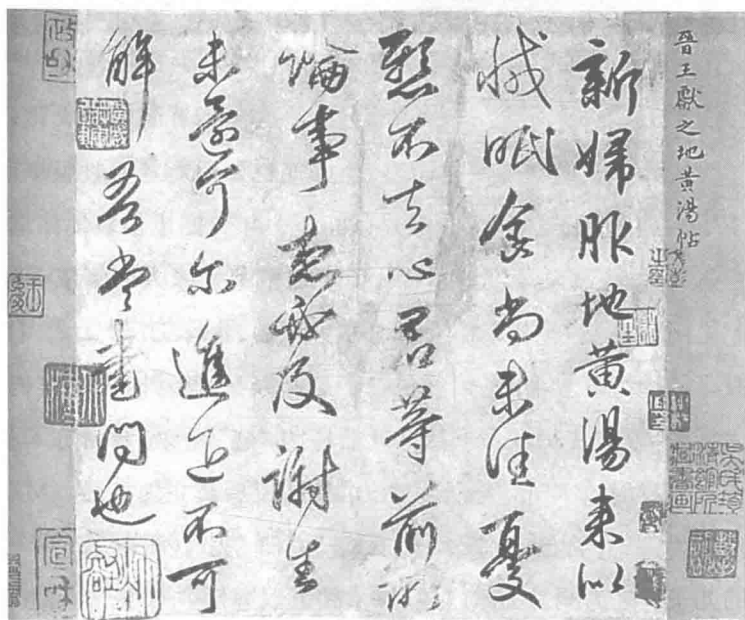 晉王獻之地黃湯帖
新婦服地黃湯來似
減眠食尚未佳憂
懸不去心君等前所
論事想必及謝生
未還可爾進退不可
解吾當書問也
政和
宣和